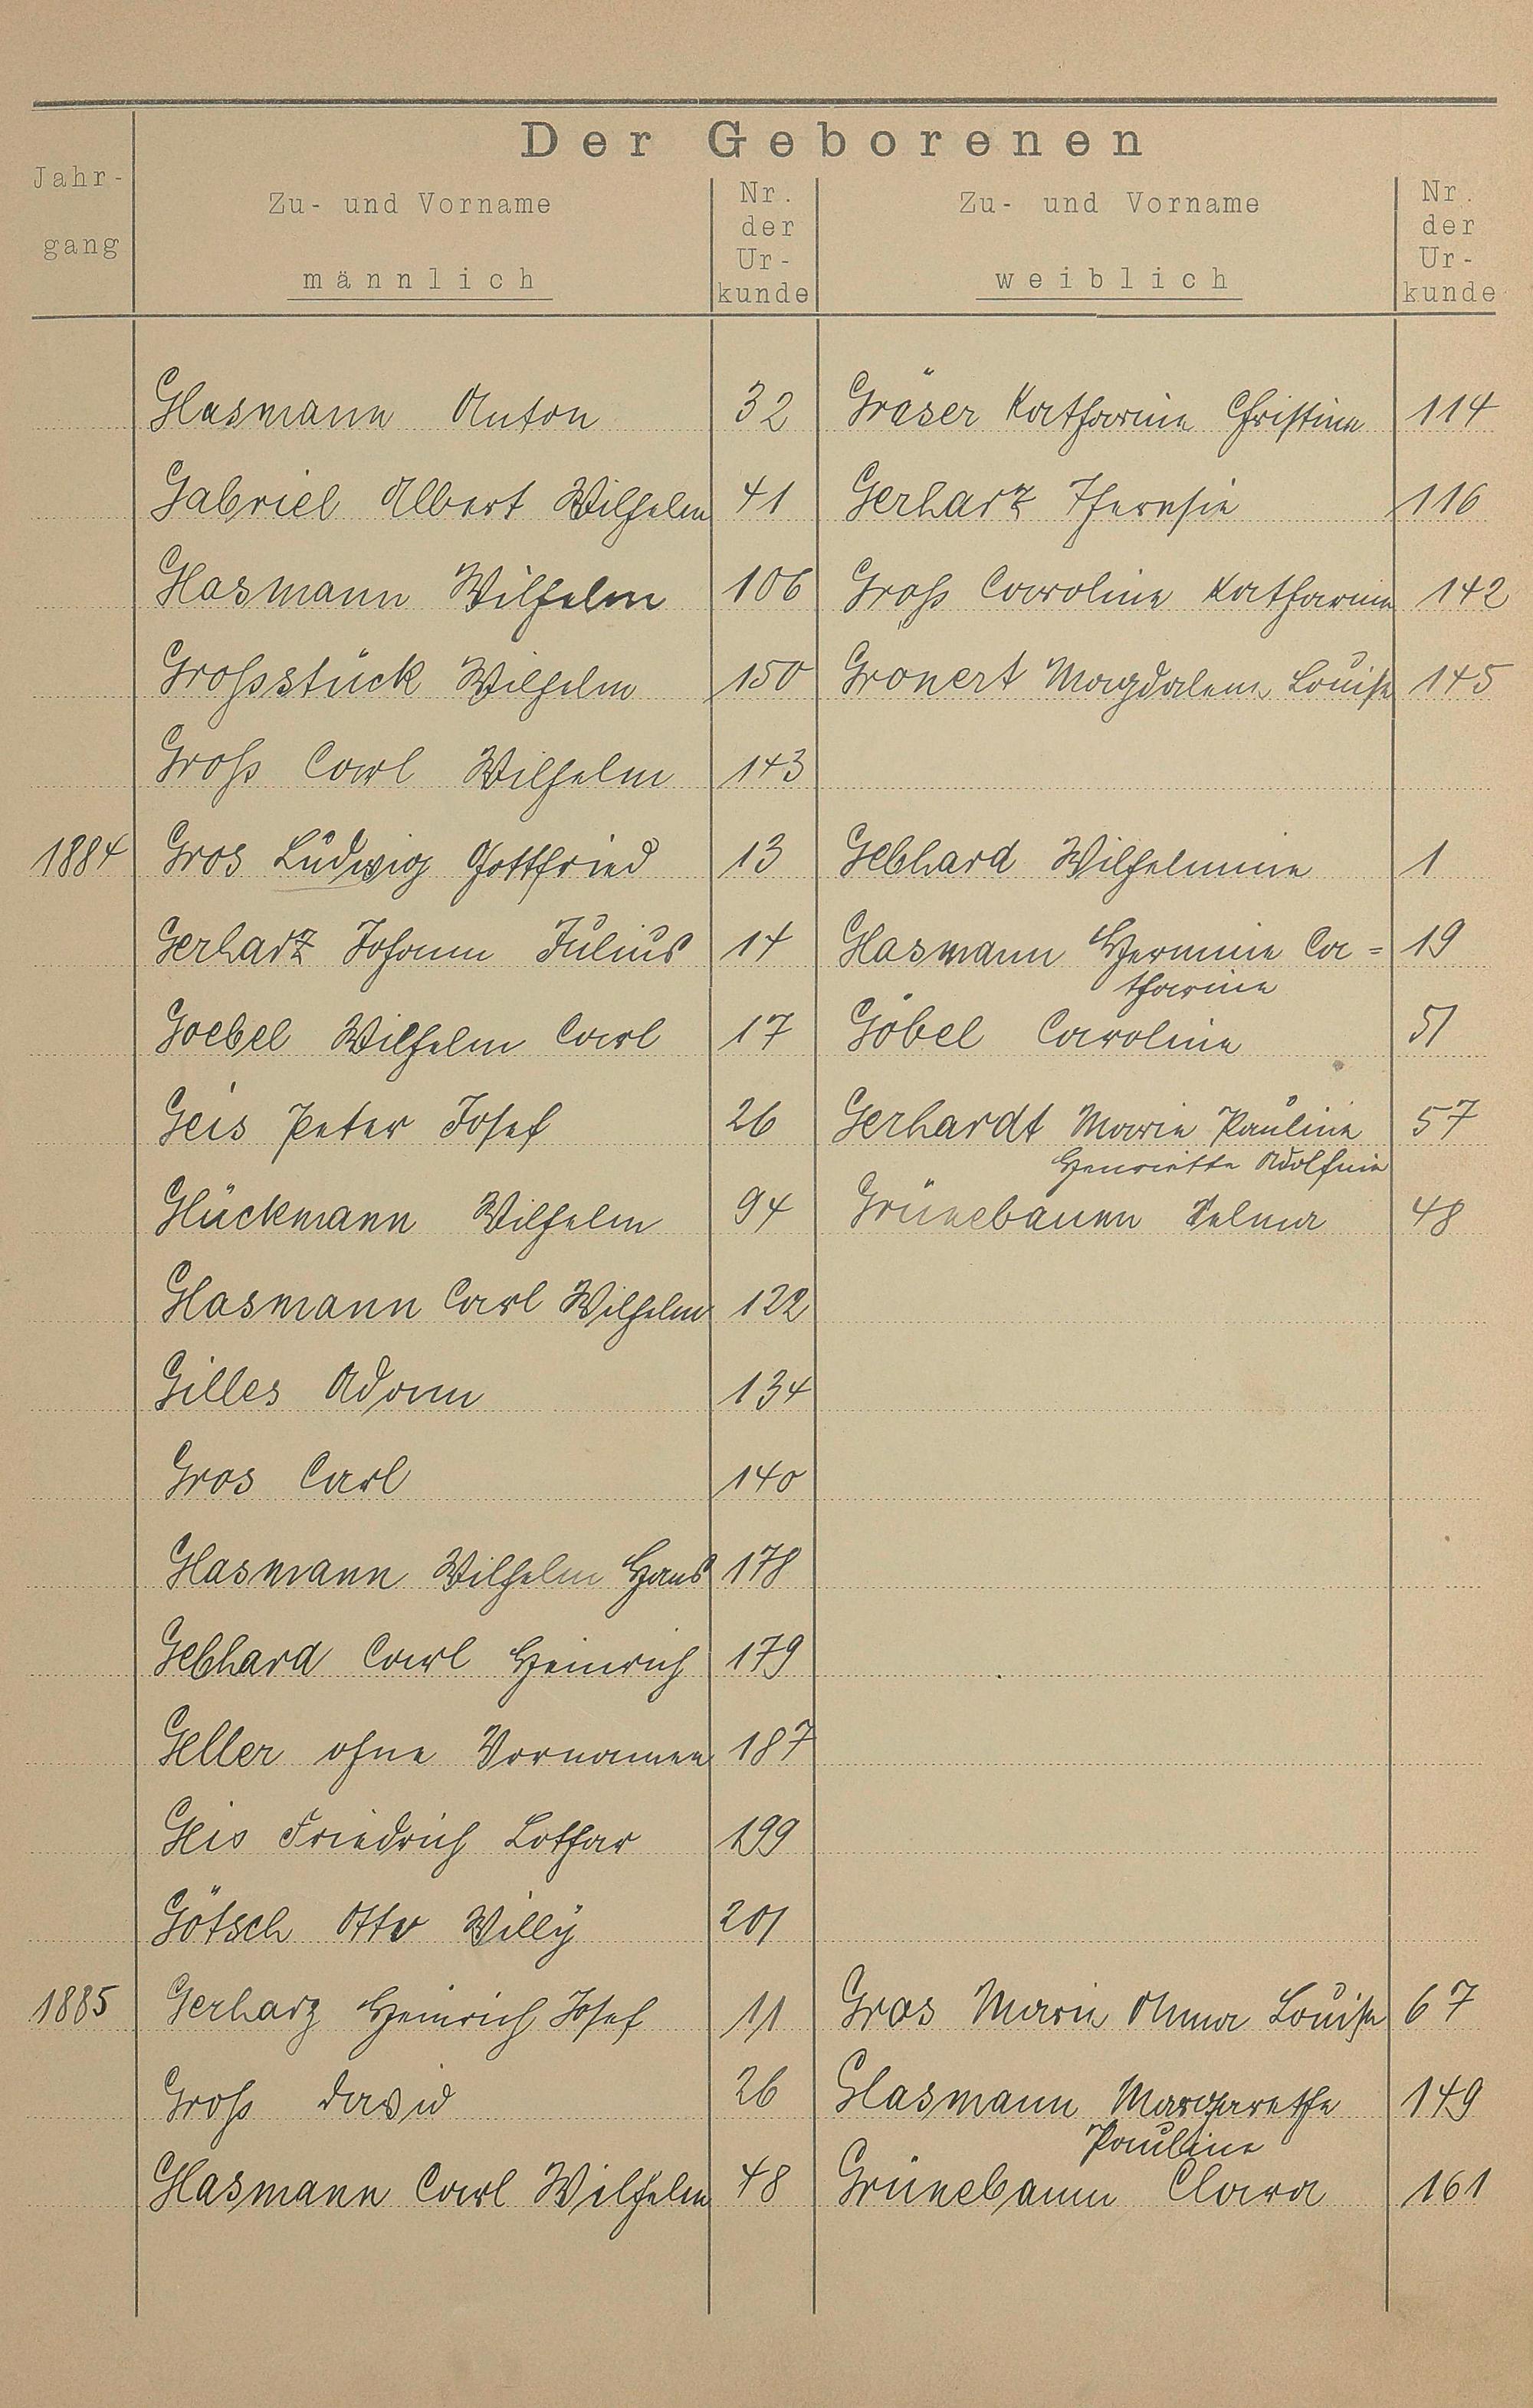 Der Geborenen
Jahr-
gang
Zu- und Vorname
männlich
Nr.
der
Ur-
kunde
Zu- und Vorname
weiblich
Nr.
der
Ur-
kunde
Glasmann Anton 32 Gräser Katharine Christine 114
Gabriel Albert Wilhelm 41 Gerharz Theresie 116
Glasmann Wilhelm 106 Groß Caroline Katharine 142
Großstück Wilhelm 150 Gronert Magdalena Louise 145
Groß Carl Wilhelm 143
1884 Gros Ludwig Gottfried 13 Gebhard Wilhelmine 1
Gerharz Johann Julius 14 Glasmann Hermine Ca= 19
tharine
Goebel Wilhelm Carl 17 Göbel Caroline 51
Geis Peter Josef 26 Gerhardt Marie Pauline 57
Henriette Adolfine
Glückmann Wilhelm 94 Grünebaum Selma 48
Glasmann Carl Wilhelm 122
Gilles Adam 134
Gros Carl 140
Glasmann Wilhelm Hans 178
Gebhard Carl Heinrich 179
Geller ohne Vornamen 187
Geis Friedrich Lothar 199
Götsch Otto Willy 201
1885 Gerharz Heinrich Josef 11 Gros Marie Anna Louise 67
Groß David 26 Glasmann Margarethe 149
Pauline
Glasmann Carl Wilhelm 48 Grünebaum Clara 161